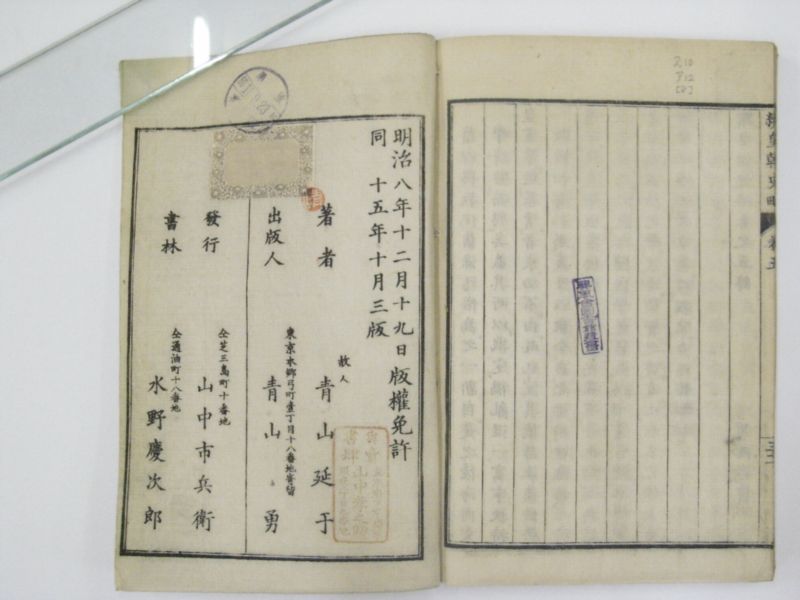 明治八年十二月十九日版權免許
同　十五年十月三版
著者
故人
青山延于
出版人
東京本郷弓町壹丁目十八番地寄留
青山　勇
發行
仝芝三島町十番地
山中市兵衛
書林
仝通油町十八番地
水野慶次郎
皇朝史
卷五